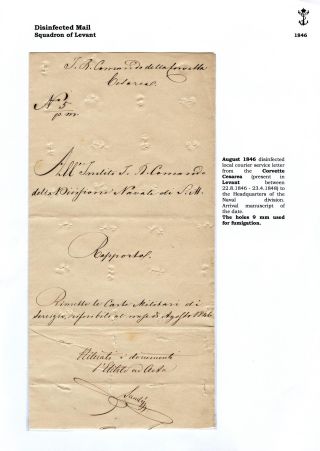 Disinfected Mail
Squadron of Levant
1846
I. R. Comando della Corvetta
Cesarea
No 5
p.m.
All' Inclito I. R. Comando
della Divisione Navale di S. M.
Rapporto.
Rimette le Carte Militari di
servizio, riferibili al mese di Agosto 1846
Ritirati i documenti
August 1846 disinfected
local courier service letter
from the Corvette
Cesarea (present in
Levant between
22.8.1846 - 23.4.1848) to
the Headquarters of the
Naval division.
Arrival manuscript of
the date.
The holes 9 mm used
for fumigation.